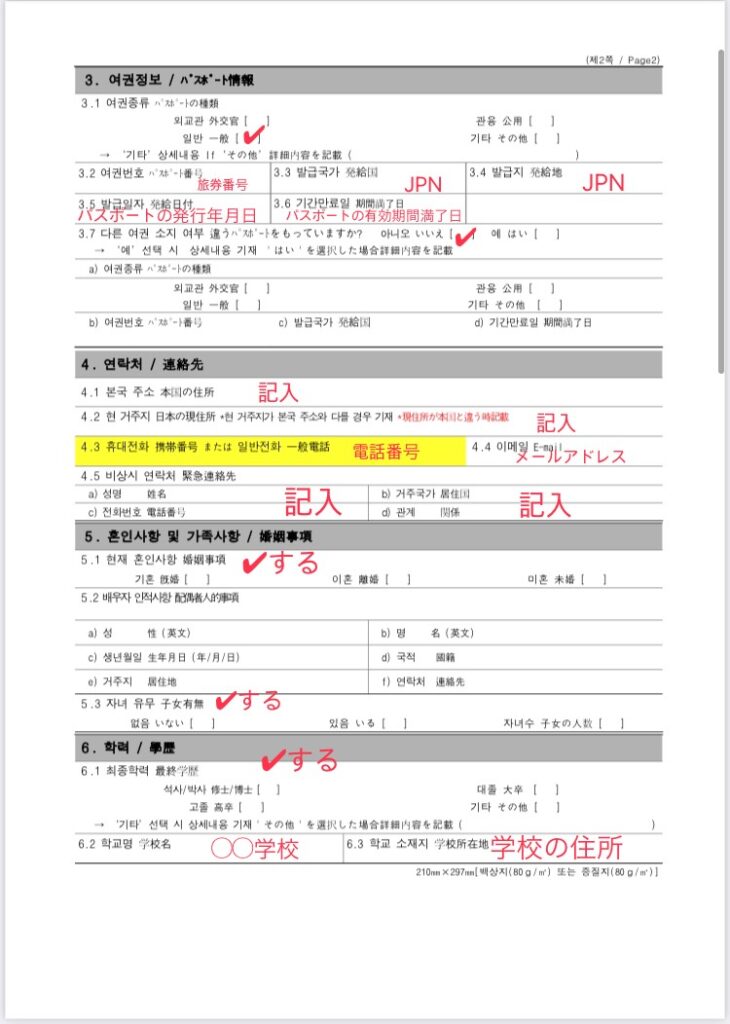 (제2쪽 / Page2)
3. 여권정보 / ﾊﾟｽﾎﾟｰﾄ情報
3.1 여권종류 ﾊﾟｽﾎﾟｰﾄの種類
외교관 外交官 [ ] 관용 公用 [ ]
일반 一般 [✔] 기타 その他 [ ]
→ '기타' 상세내용 If 'その他' 詳細内容を記載 ( )
3.2 여권번호 ﾊﾟｽﾎﾟｰﾄ番号 旅券番号 3.3 발급국가 発給国 JPN 3.4 발급지 発給地 JPN
3.5 발급일자 発給日付 パスポートの発行年月日 3.6 기간만료일 期間満了日 パスポートの有効期間満了日
3.7 다른 여권 소지 여부 違うﾊﾟｽﾎﾟｰﾄをもっていますか? 아니오 いいえ [✔] 예 はい [ ]
→ '예' 선택 시 상세내용 기재 'はい'を選択した場合詳細内容を記載
a) 여권종류 ﾊﾟｽﾎﾟｰﾄの種類
외교관 外交官 [ ] 관용 公用 [ ]
일반 一般 [ ] 기타 その他 [ ]
b) 여권번호 ﾊﾟｽﾎﾟｰﾄ番号 c) 발급국가 発給国 d) 기간만료일 期間満了日
4. 연락처 / 連絡先
4.1 본국 주소 本国の住所 記入
4.2 현 거주지 日本の現住所 *현 거주지가 본국 주소와 다를 경우 기재 *現住所が本国と違う時記載 記入
4.3 휴대전화 携帯番号 または 일반전화 一般電話 電話番号 4.4 이메일 E-mail メールアドレス
4.5 비상시 연락처 緊急連絡先
a) 성명 姓名 記入 b) 거주국가 居住国 記入
c) 전화번호 電話番号 d) 관계 関係
5. 혼인사항 및 가족사항 / 婚姻事項
5.1 현재 혼인사항 婚姻事項 ✔する
기혼 既婚 [ ] 이혼 離婚 [ ] 미혼 未婚 [ ]
5.2 배우자 인적사항 配偶者人的事項
a) 성 性 (英文) b) 명 名 (英文)
c) 생년월일 生年月日 (年/月/日) d) 국적 國籍
e) 거주지 居住地 f) 연락처 連絡先
5.3 자녀 유무 子女有無 ✔する
없음 いない [ ] 있음 いる [ ] 자녀수 子女の人数 [ ]
6. 학력 / 學歷 ✔する
6.1 최종학력 最終学歴
석사/박사 修士/博士 [ ] 대졸 大卒 [ ]
고졸 高卒 [ ] 기타 その他 [ ]
→ '기타' 선택 시 상세내용 기재 'その他'を選択した場合詳細内容を記載 ( )
6.2 학교명 学校名 〇〇学校 6.3 학교 소재지 学校所在地 学校の住所
210㎜×297㎜[백상지(80ｇ/㎡) 또는 중질지(80ｇ/㎡)]